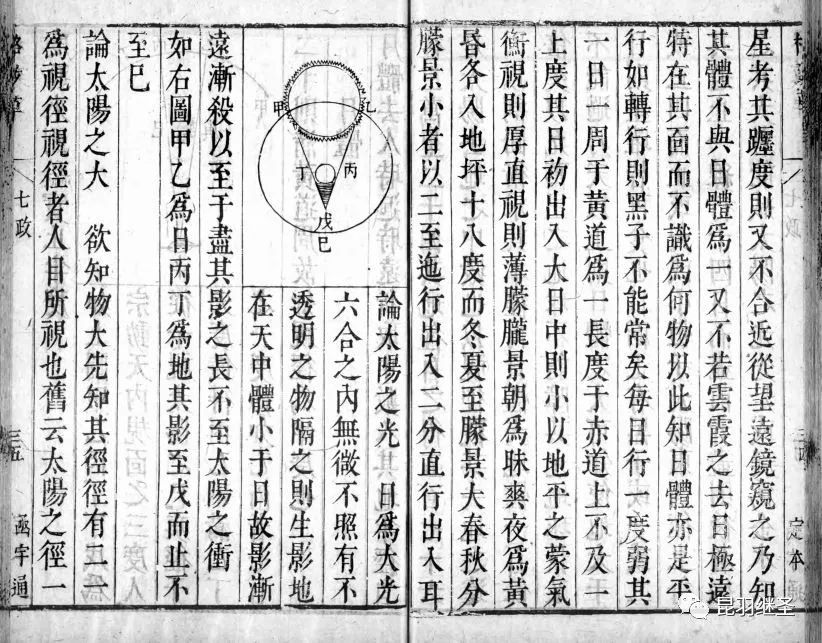 星考其躔度則又不合近從望遠鏡窺之乃知
其體不與日體爲一又不若雲霞之去日極遠
特在其面而不識爲何物以此知日體亦是平
行如轉行則黑子不能常矣每日行一度弱其
一日一周于黃道爲一長度于赤道上不及一
上度其日初出入大日中則小以地平之蒙氣
衡視則厚直視則薄朦朧景朝爲昧爽夜爲黃
昏各入地坪十八度而冬夏至朦景大春秋分
朦景小者以二至迤行出入二分直行出入耳
論太陽之光 日爲大光
六合之內無微不照有不
透明之物隔之則生影地
在天中體小于日故影漸
遠漸殺以至于盡其影之長不至太陽之衝
如右圖甲乙爲日丙丁爲地其影至戊而止不
至巳
論太陽之大 欲知物大先知其徑徑有二一
爲視徑視徑者人目所視也舊云太陽之徑一
甲
乙
丙
丁
戊
巳
草
七政
三五
函宇通
七政
定本
昆羽继圣